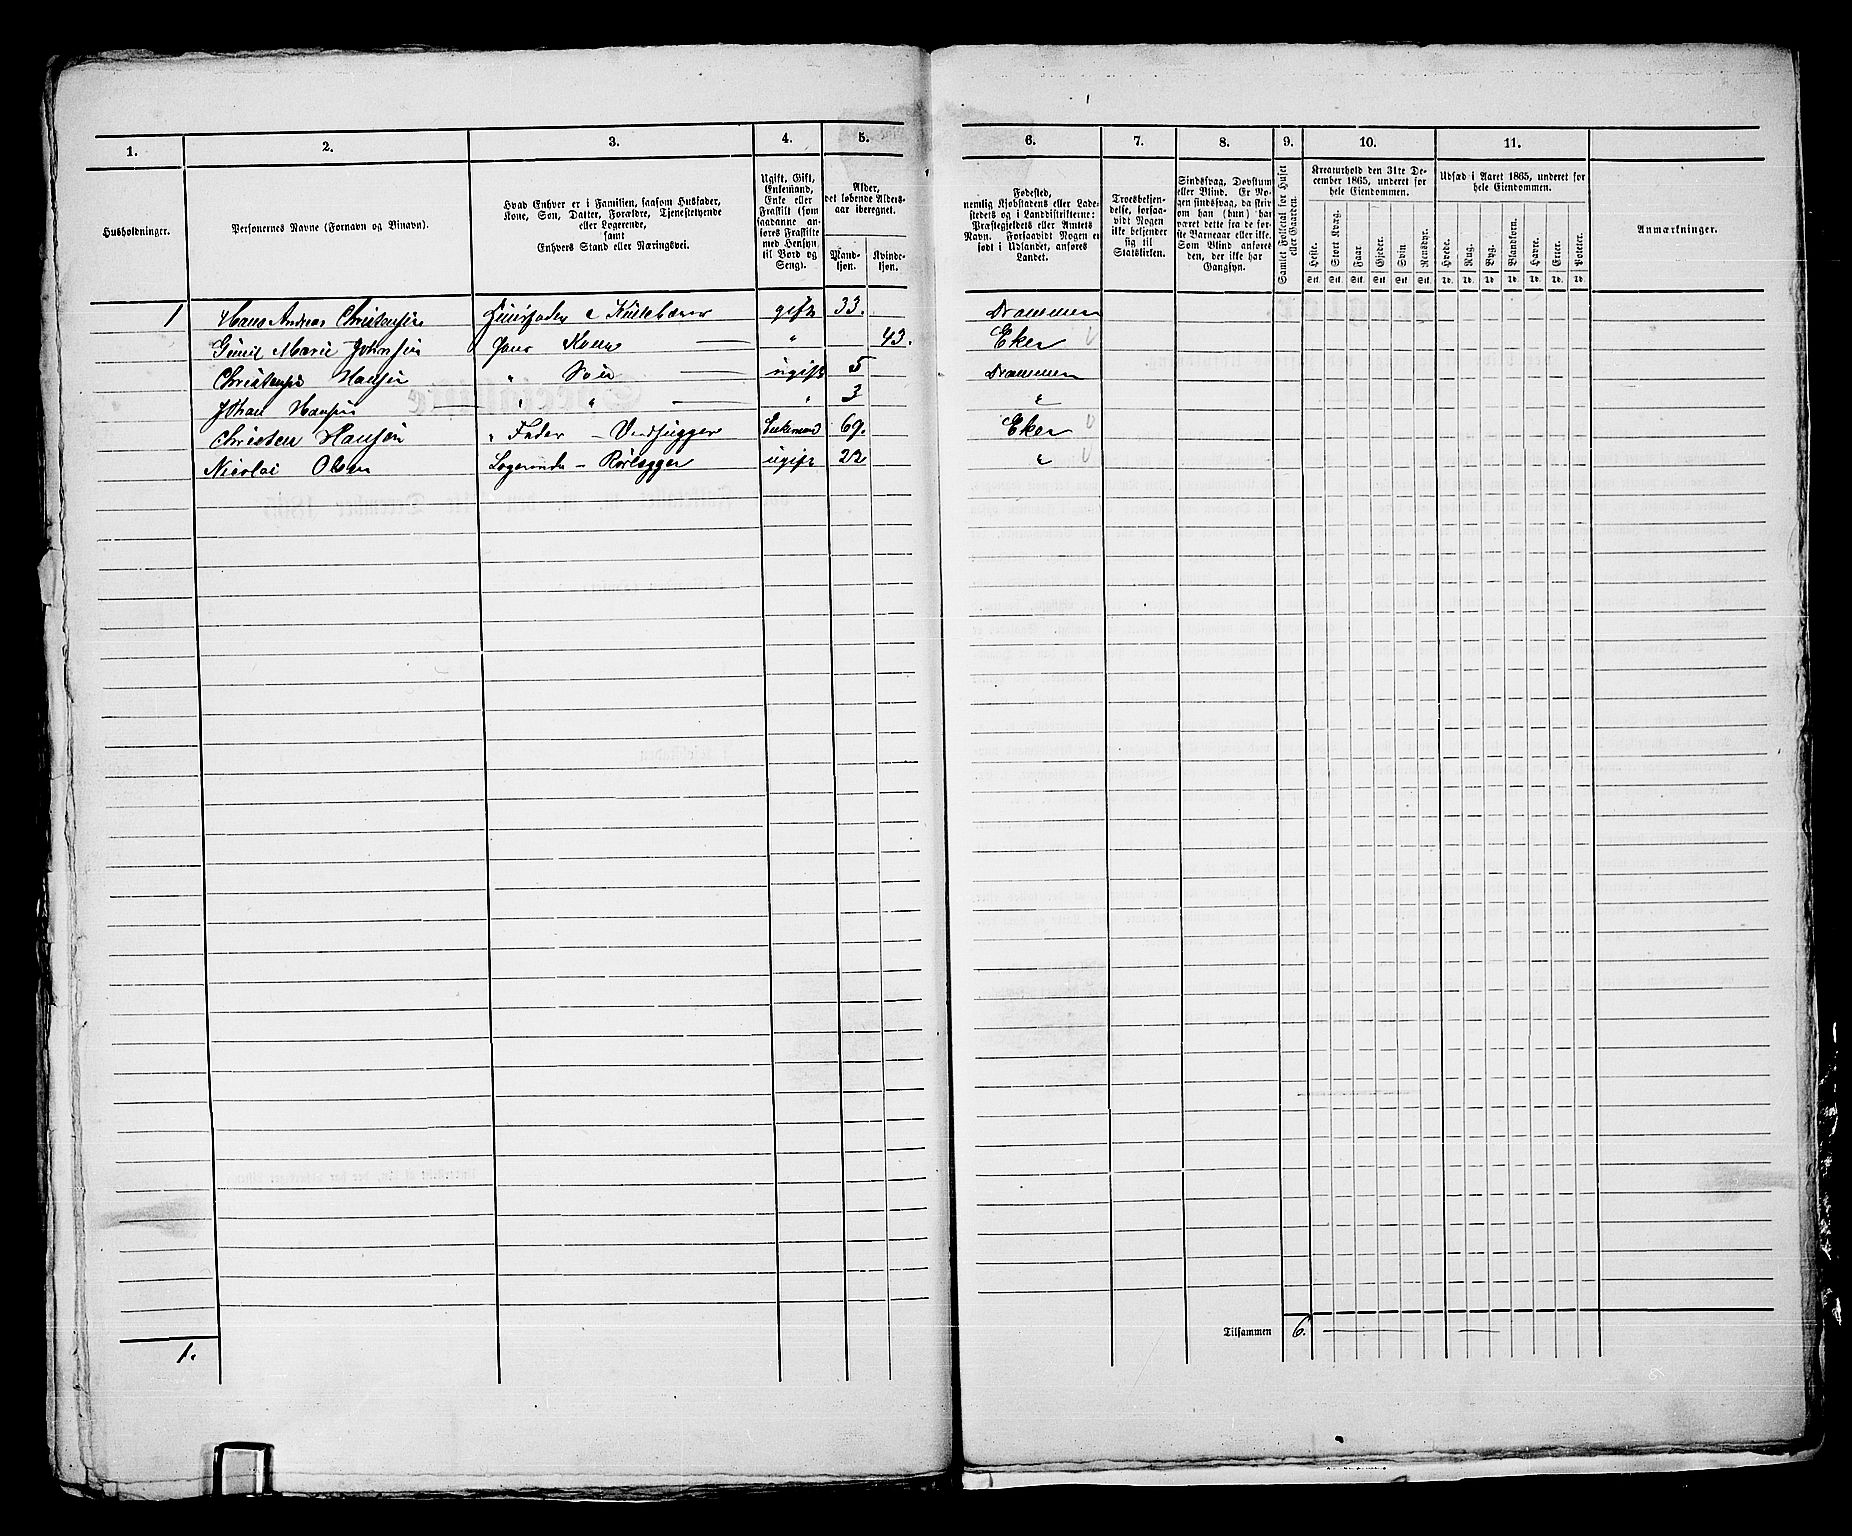 1. 2. 3. 4. 5. 6. 7. 8. 9. 10. 11.
Husholdninger.
Personernes Navne (Fornavn og Binavn).
Hvad Enhver er i Familien, saasom Husfader,
Kone, Søn, Datter, Forældre, Tjenestetyende
eller Logerende,
samt
Enhvers Stand eller Næringsvei.
Ugift, Gift,
Enkemand,
Enke eller
Fraskilt (som
saadanne an-
føres Fraskilte
med Hensyn
til Bord og
Seng).
Alder,
det løbende Alders-
aar iberegnet.
Mand-
kjøn.
Kvinde-
kjøn.
Fødested,
nemlig Kjøbstadens eller Lade-
stedets og i Landdistrikterne:
Præstegjeldets eller Amtets
Navn. Forsaavidt Nogen er
født i Udlandet, anføres
Landet.
Troesbekjen-
delse, forsaa-
vidt Nogen
ikke bekjender
sig til
Statskirken.
Sindssvag, Døvstum
eller Blind. Er No-
gen sindssvag, da skriv
om han (hun) har
været dette fra de før-
ste Barneaar eller ikke.
Som Blind anføres
den, der ikke har
Gangsyn.
Samlet Folketal for Huset
eller Gaarden.
Kreaturhold den 31te De-
cember 1865, underet for
hele Eiendommen.
Heste. Stort Kvæg. Faar. Gjeder. Svin Rensdyr.
Stk. Stk. Stk. Stk. Stk. Stk.
Udsæd i Aaret 1865, underet for
hele Eiendommen.
Hvede. Rug. Byg. Blandkorn. Havre. Erter. Poteter.
Td. Td. Td. Td. Td. Td. Td.
Anmærkninger.
1 Hans Andreas Christensen Huusfader gift 33. Drammen
Marie Johnsen Hans Kone — " 43. Eker
Hansen " Søn — ugift 5 Drammen
Johan Hansen — " " — " 3 "
Christen Hansen " Fader — Vedhugger Enkemand 69. Eker
Nicolai Olsen Logerende — Rørlægger ugift 22 "
Tilsammen 6.
1.